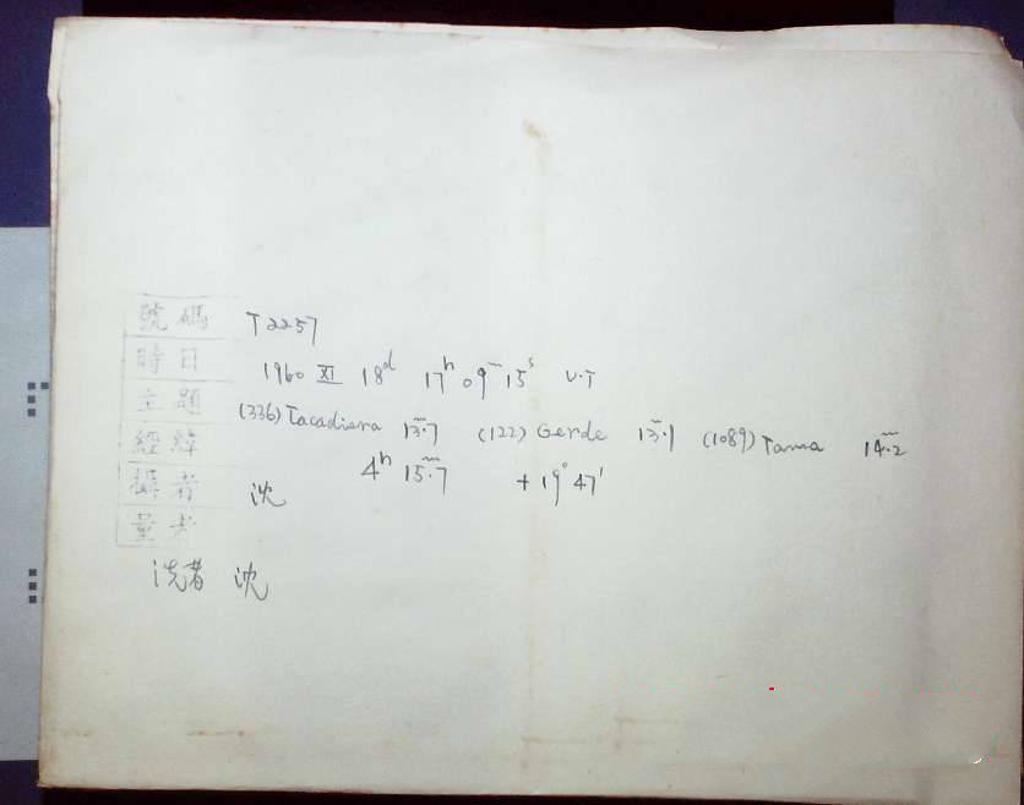 號碼 T2257
時日 1960 XI 18d 17h 09m 15s U.T
主題 (336) Lacadiera 13m.7 (122) Gerde 13m.1 (1089) Tama 14m.2
經緯 4h 15m.7 +19° 47'
攝者 沈
量者
洗者 沈